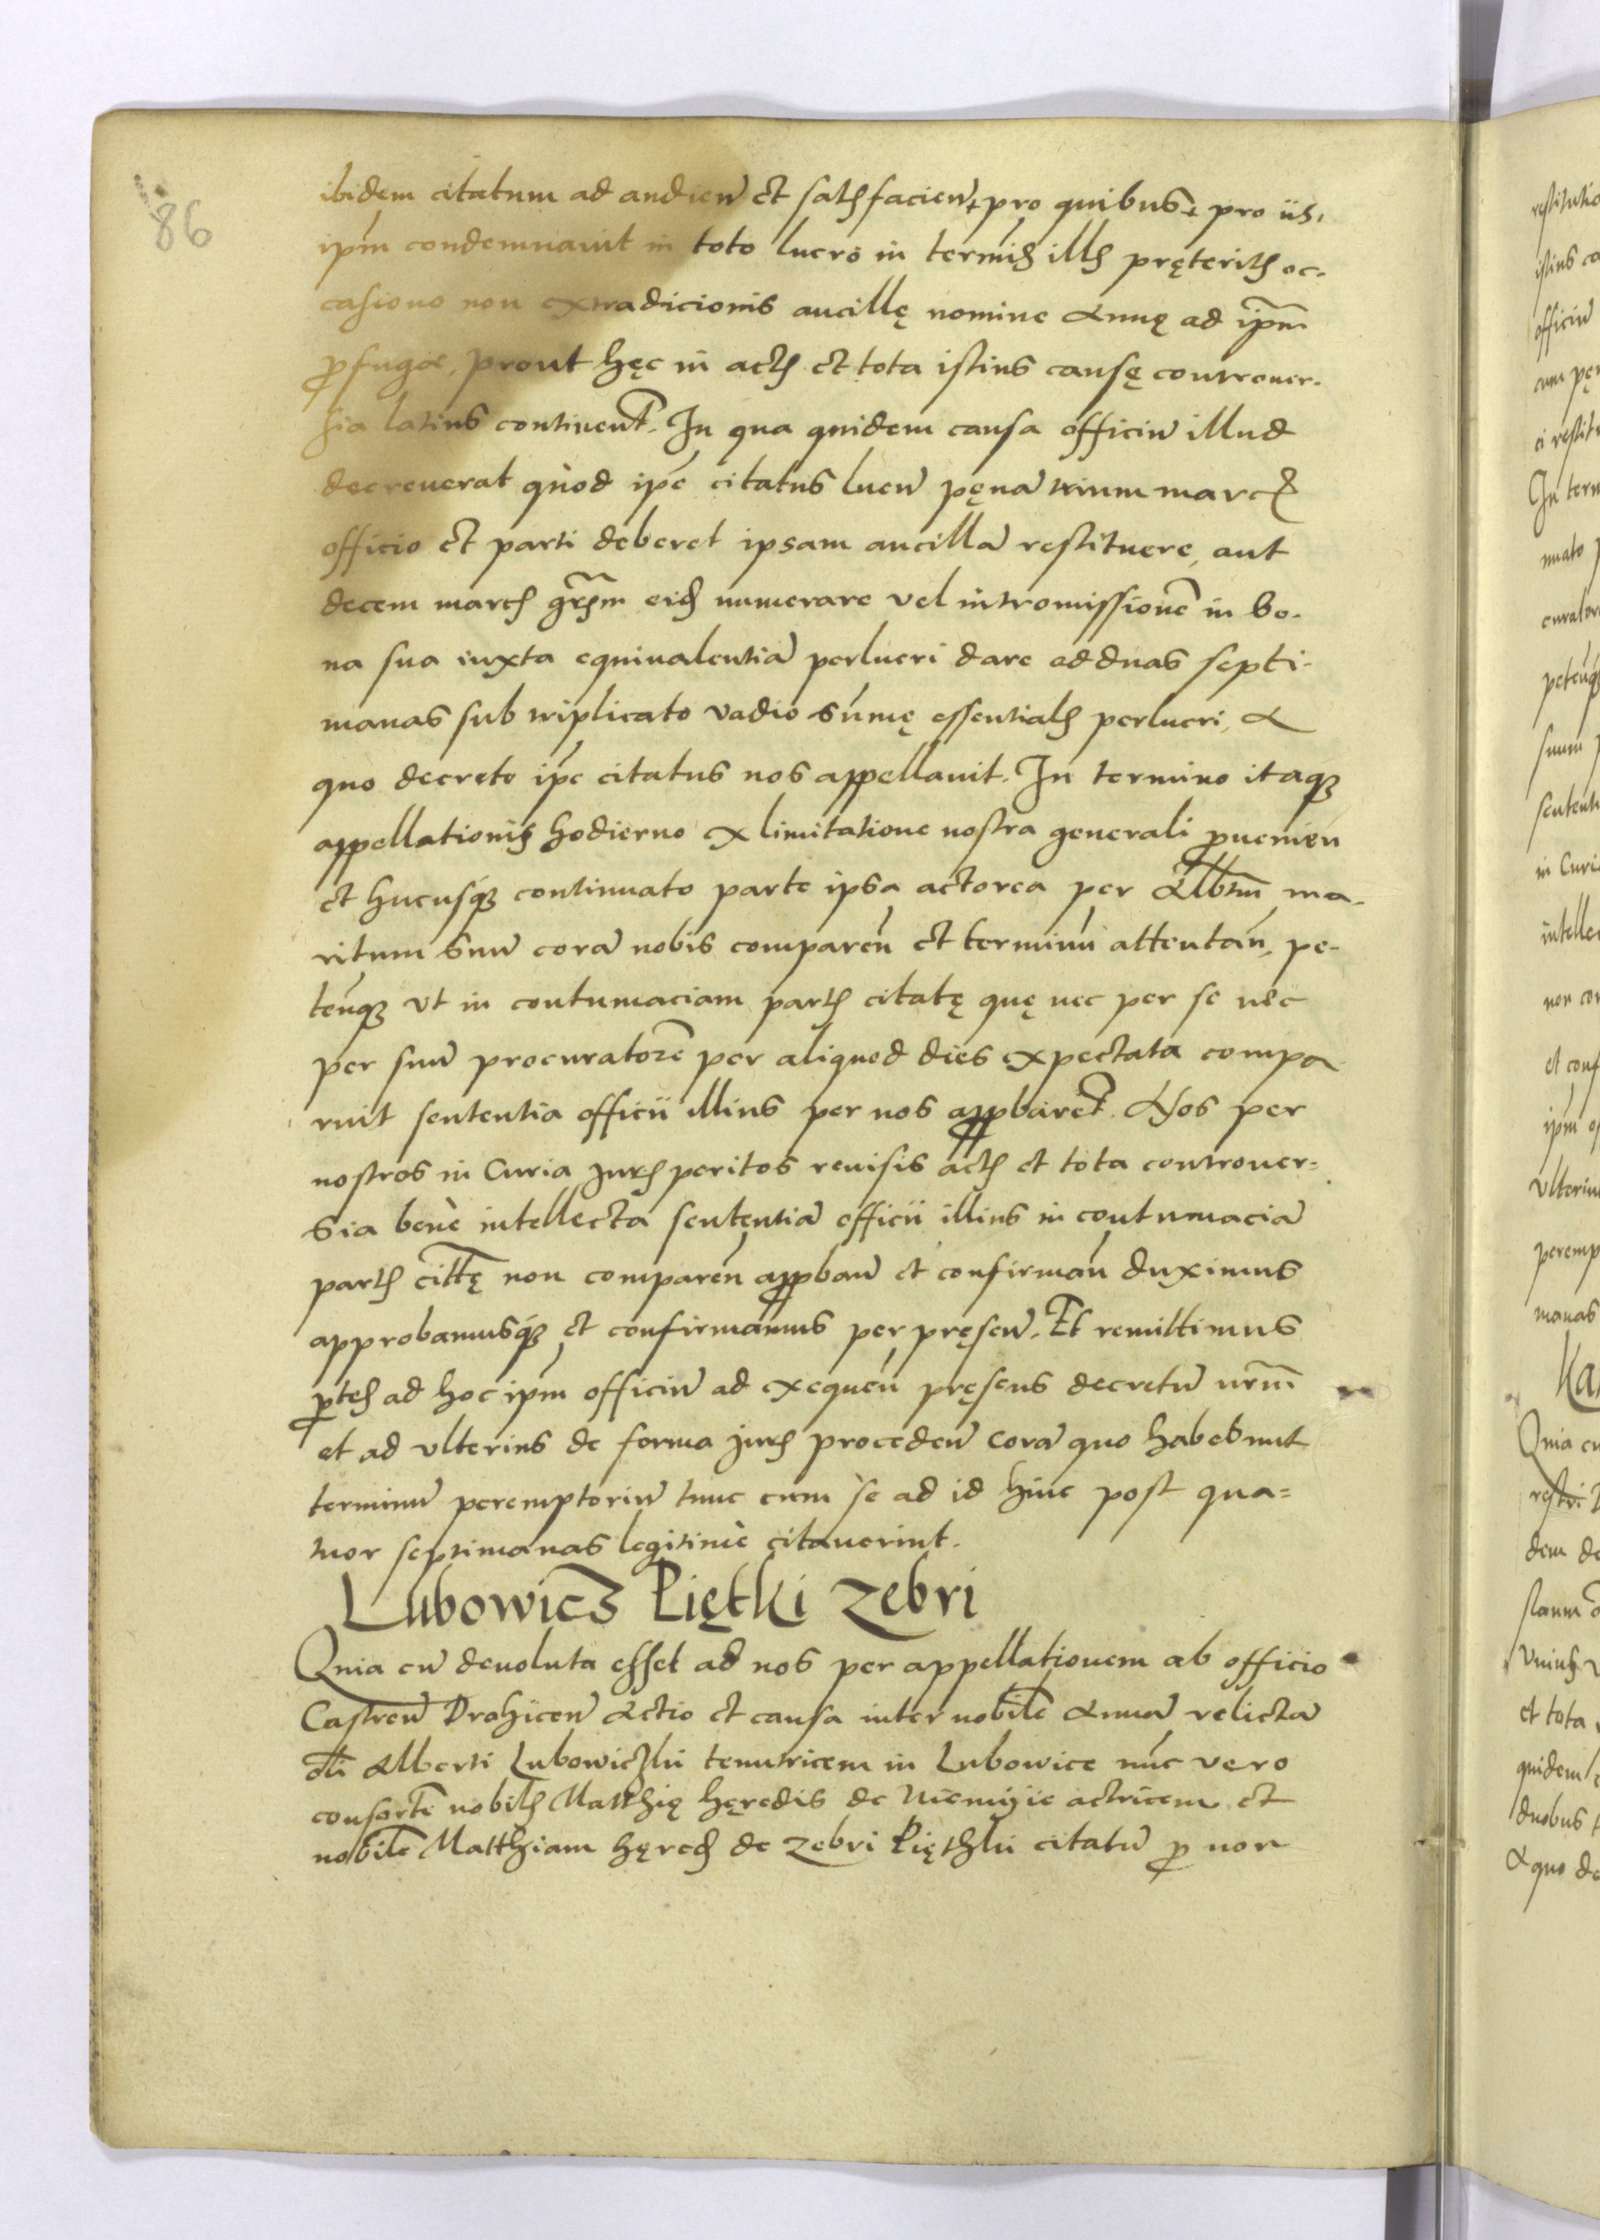 86
ibidem citatum ad audien̄ et satisfacien̄ pro quibus pro iis
ipm̄ condemnauit in toto lucro in terminis illis pręteritis oc-
casione non extradicionis ancillę nomine Annę ad ipm̄
ꝓfugae, prout hęc in actis et tota istius causę controuer-
sia latius continent᷒. In qua quidem causa officiū illud
decreuerat quòd ipē citatus lucū pęnā trium marcꝝ
officio et parti deberet ipsam ancillā restituere, aut
decem marcis eid numerare vel intromissionē in bo-
na sua iuxta equiualentiā perlucri dare ad duas septi-
manas sub triplicato vadio sūmę essentialis perlucri, A
quo decreto ipē citatus nos appellauit. In termino itaqȝ
appellationis hodierno ex limitatione nostra generali ꝓuenien̄
et hucusqȝ continuato parte ipsa actorea per Albtm̄ ma-
ritum suū corā nobis comparen̄ et terminū attentan̄, pe-
ten̄qȝ vt in contumaciam partis citatę quę nec per se nec
per suū procuratorē per aliquod dies expectata compa
ruit sententia officii illius per nos apꝓbaret᷒. Nos per
nostros in Curia Juris peritos reuisis actis et tota controuer-
sia benè intellecta sententiā officii illius in contumaciā
partis citt̄ę non comparen̄ apꝓban̄ et confirman̄ duximus
approbamusqȝ et confirmamus per pręsen̄. Et remittimus
ꝑtes ad hoc ipm̄ officiū ad exequen̄ pręsens decretū nr̄m̄
et ad vlterius de forma Juris proceden̄ corā quo habebunt
terminū peremptoriū tunc cum sè ad id hinc post qua-
tuor septimanas legitimè citauerint.
Lubowicz Piętki Zebri
Quia cū deuoluta esset ad nos per appellationem ab officio
Castren̄ Drohicen̄ Actio et causa inter nobilē Annā relictā
oli Alberti Lubowiczki tenutricem in Lubowice nūc vero
consortē nobilis Matthię hęredis de Niemyie actricem et
nobilē Matthiam hęred de Zebri Piętzki citatū ꝓ non